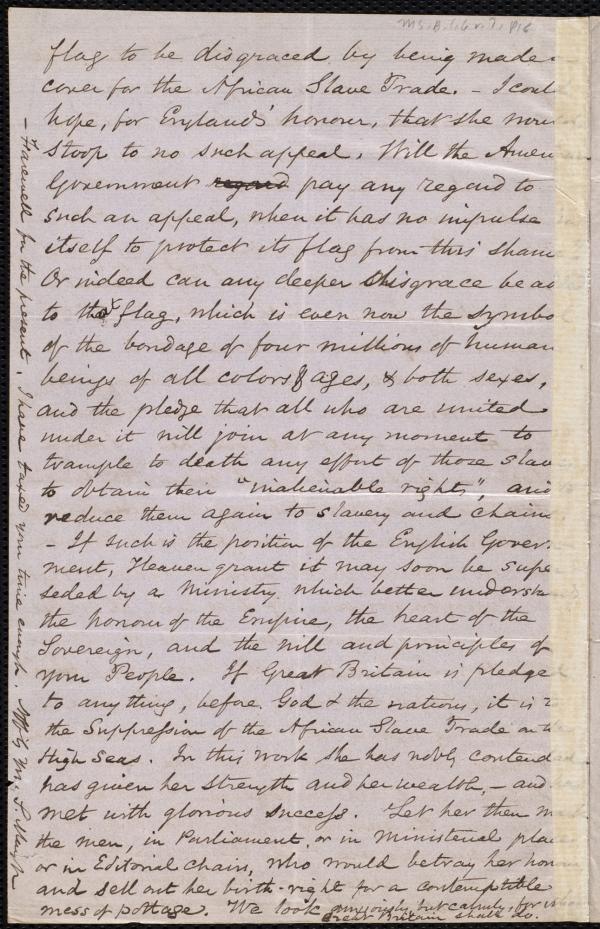 Ms. B. 1.6 v. 7, p. 6
flag to be disgraced by being made
cover for the African Slave Trade. - I coul
hope, for England's honour, that she wou
stoop to no such appeal. Will the Amer
Government regard pay any regard to
such an appeal, when it has no impulse
itself to protect its flag from this sham
Or indeed can any deeper disgrace be ad
to that flag, which is even now the symbo
of the bondage of four millions of human
beings of all colors & ages, & both sexes,
and the pledge that all who are united
under it will join at any moment to
trample to death any effort of those slav
to obtain their "inalienable rights", and
reduce them again to slavery and chain
- If such is the position of the English Gover
ment, Heaven grant it may soon be supe
seded by a Ministry which better understan
the honour of the Empire, the heart of the
Sovereign, and the will and principles of
your People. If Great Britain is pledge
to anything, before God & the nations, it is t
the Suppression of the African Slave Trade on the
High Seas. In this work she has nobly contended
has given her strength and her wealth, - and
met with glorious success. Let her then
the men, in Parliament, or in ministerial place
or in Editorial chairs, who would betray her honou
and sell out her birth-right for a contemptible
mess of pottage. We look anxiously, but calmly, for
Great Britain shall do.
- Farewell for the present. I have taxed your time enough. Aff'y Yr, S. May Jr